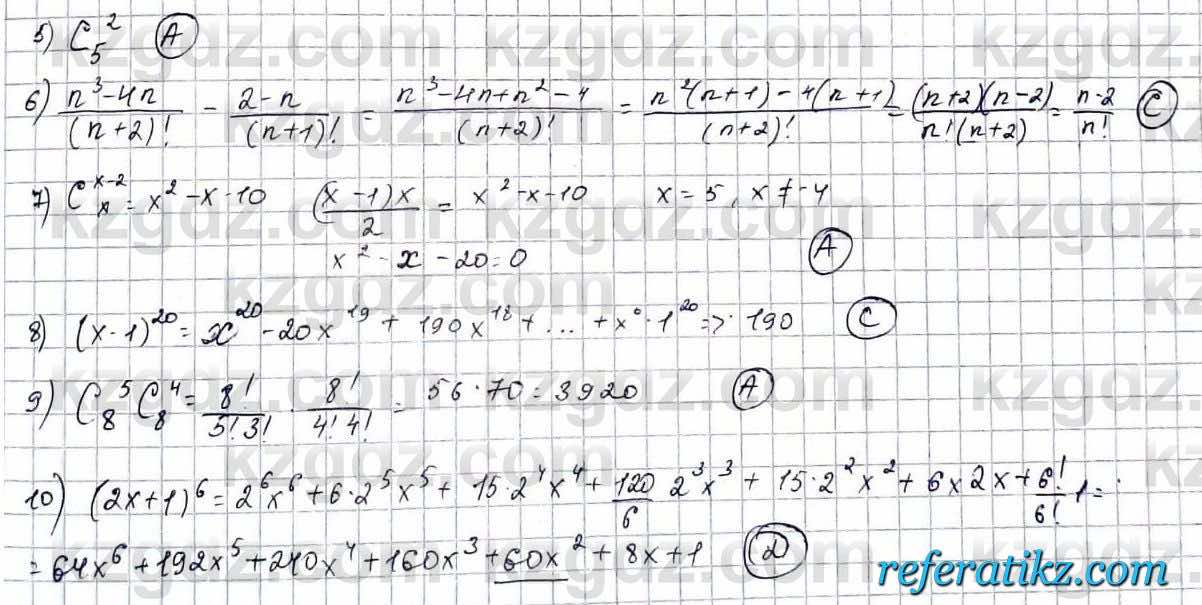 5) C₅² (A)
6) (n³-4n)/((n+2)!) - (2-n)/((n+1)!) = (n³-4n+n²-4)/((n+2)!) = (n²(n+1)-4(n+1))/((n+2)!) = ((n+2)(n-2))/(n!(n+2)) = (n-2)/n! (C)
7) Cₓˣ⁻² = x²-x-10 ((x-1)x)/2 = x²-x-10 x=5, x≠-4
x²-x-20=0 (A)
8) (x-1)²⁰ = x²⁰-20x¹⁹+190x¹⁸+...+x⁰·1²⁰ => 190 (C)
9) C₈⁵C₈⁴ = 8!/(5!3!) · 8!/(4!4!) = 56·70=3920 (A)
10) (2x+1)⁶ = 2⁶x⁶+6·2⁵x⁵+15·2⁴x⁴+120/6 2³x³+15·2²x²+6x2x+6!/6! 1=
=64x⁶+192x⁵+240x⁴+160x³+60x²+8x+1 (D)
referatikz.com
kzgdz.com